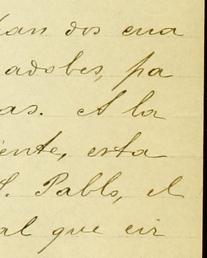 han dos cua
adobes, pa
as. A la
iente, esta
S. Pablo, el
al que cir